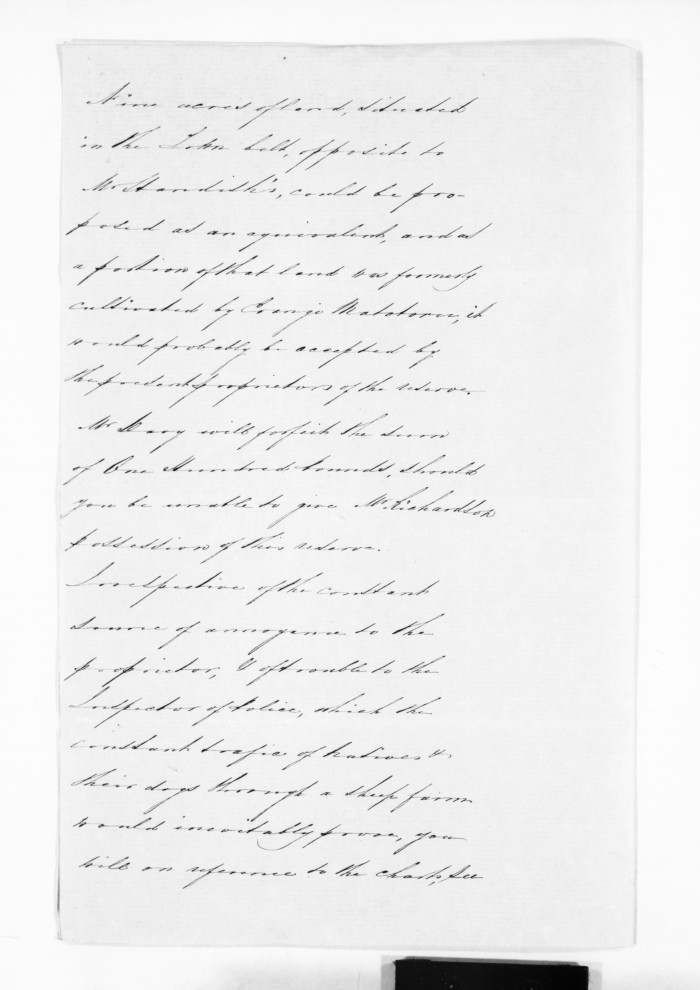 Nine acres of land, situated
in the belt, opposite to
Mr Standish's, could be pro-
posed as an equivalent, and as
a portion of that land was formerly
cultivated by it
would probably be accepted by
the present proprietors of the reserve.
Mr will forfeit the sum
of One Hundred Pounds, should
you be unable to give Mr Richardson
possession of this reserve.
Irrespective of the constant
source of annoyance to the
proprietor, & of trouble to the
Inspector of Police, which the
constant trafic of Natives &
their dogs through a sheep farm
would inevitably prove, you
will on reference to the chart, see